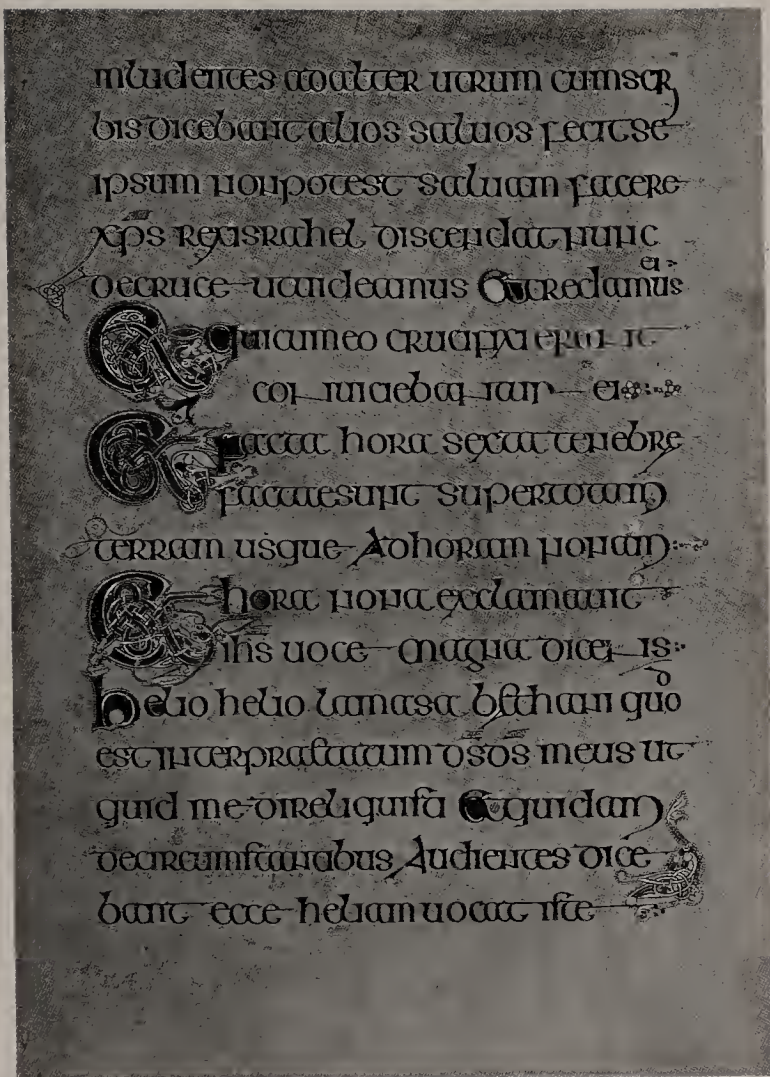 inludentes adalter utrum cumscri
bis dicebant alios saluos fecit se
ipsum nonpotest saluam facere
xps rexisrahel discendat nunc
decruce utuideamus & credamus ei
& quicumeo crucifixi erant
conuiciebantur ei
& facta hora sexta tenebre
factaesunt supertotam
terram usque adhoram nonam
& hora nona exclamauit
ihs uoce magna dicens
helio helio lamasa bacthani quod
est interpraetatum dsds meus ut
quid me direliquisti & quidam
decircumstantibus audientes dice
bant ecce heliam uocat iste